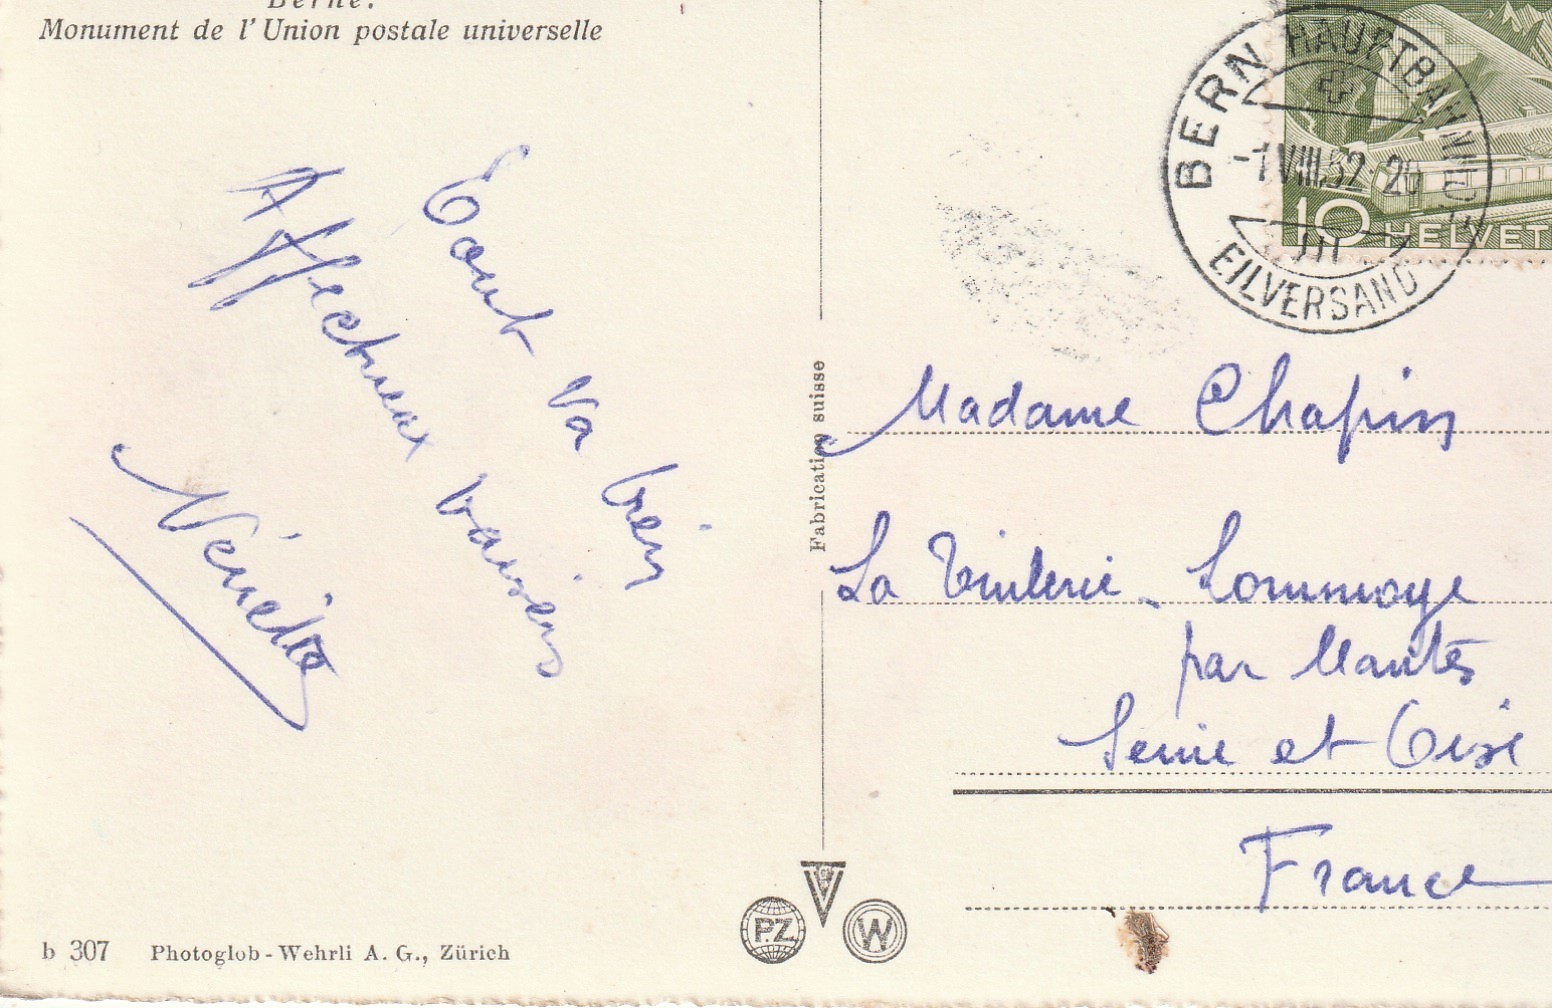 Berne.
Monument de l'Union postale universelle
Tout va bien
Affectueux baisers
BERN HAUPTBAHNHOF
-1.VIII.52-20
III
EILVERSAND
10 HELVET
Fabrication suisse
Madame Chapin
La - Lommoye
par Mantes
Seine et Oise
France
P.Z.
W
b 307 Photoglob-Wehrli A. G., Zürich